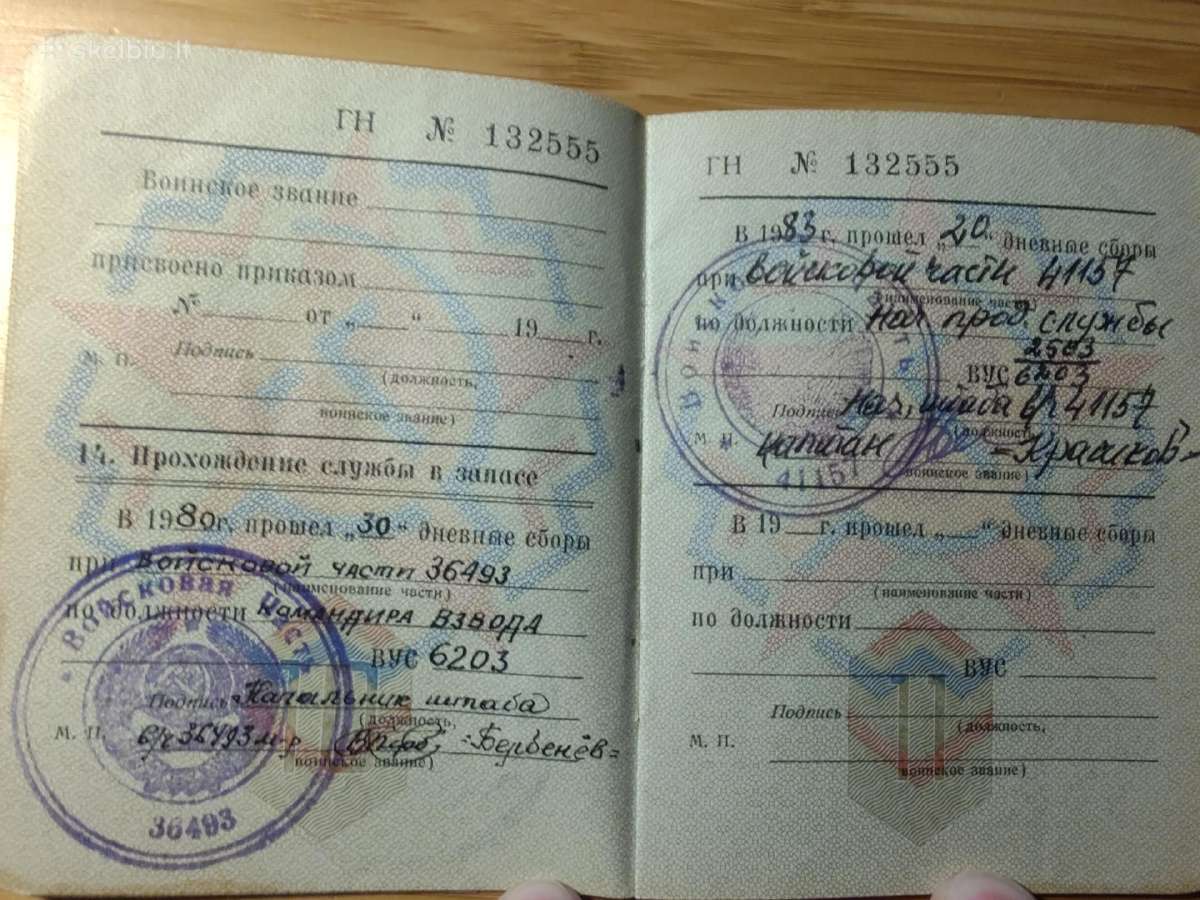 skelbiu.lt
ГН № 132555
Воинское звание
присвоено приказом
№ от „ “ 19 г.
М. П. Подпись
(должность,
воинское звание)
14. Прохождение службы в запасе
В 1980г. прошел „30“ дневные сборы
при Войсковой части 36493
(наименование части)
по должности командира взвода
ВУС 6203
Подпись Начальник штаба
(должность,
М. П. в/ч 36493 м-р =Бербенёв=
воинское звание)
Войсковая часть
36493
ГН № 132555
В 1983 г. прошел „20“ дневные сборы
при войсковой части 41157
(наименование части)
по должности Нач. прод. службы
2503
ВУС 6203
Подпись Нач. штаба в/ч 41157
(должность,
М. П. капитан
воинское звание)
Войсковая часть
41157
В 19 г. прошел „ “ дневные сборы
при
(наименование части)
по должности
ВУС
Подпись
(должность,
М. П.
воинское звание)